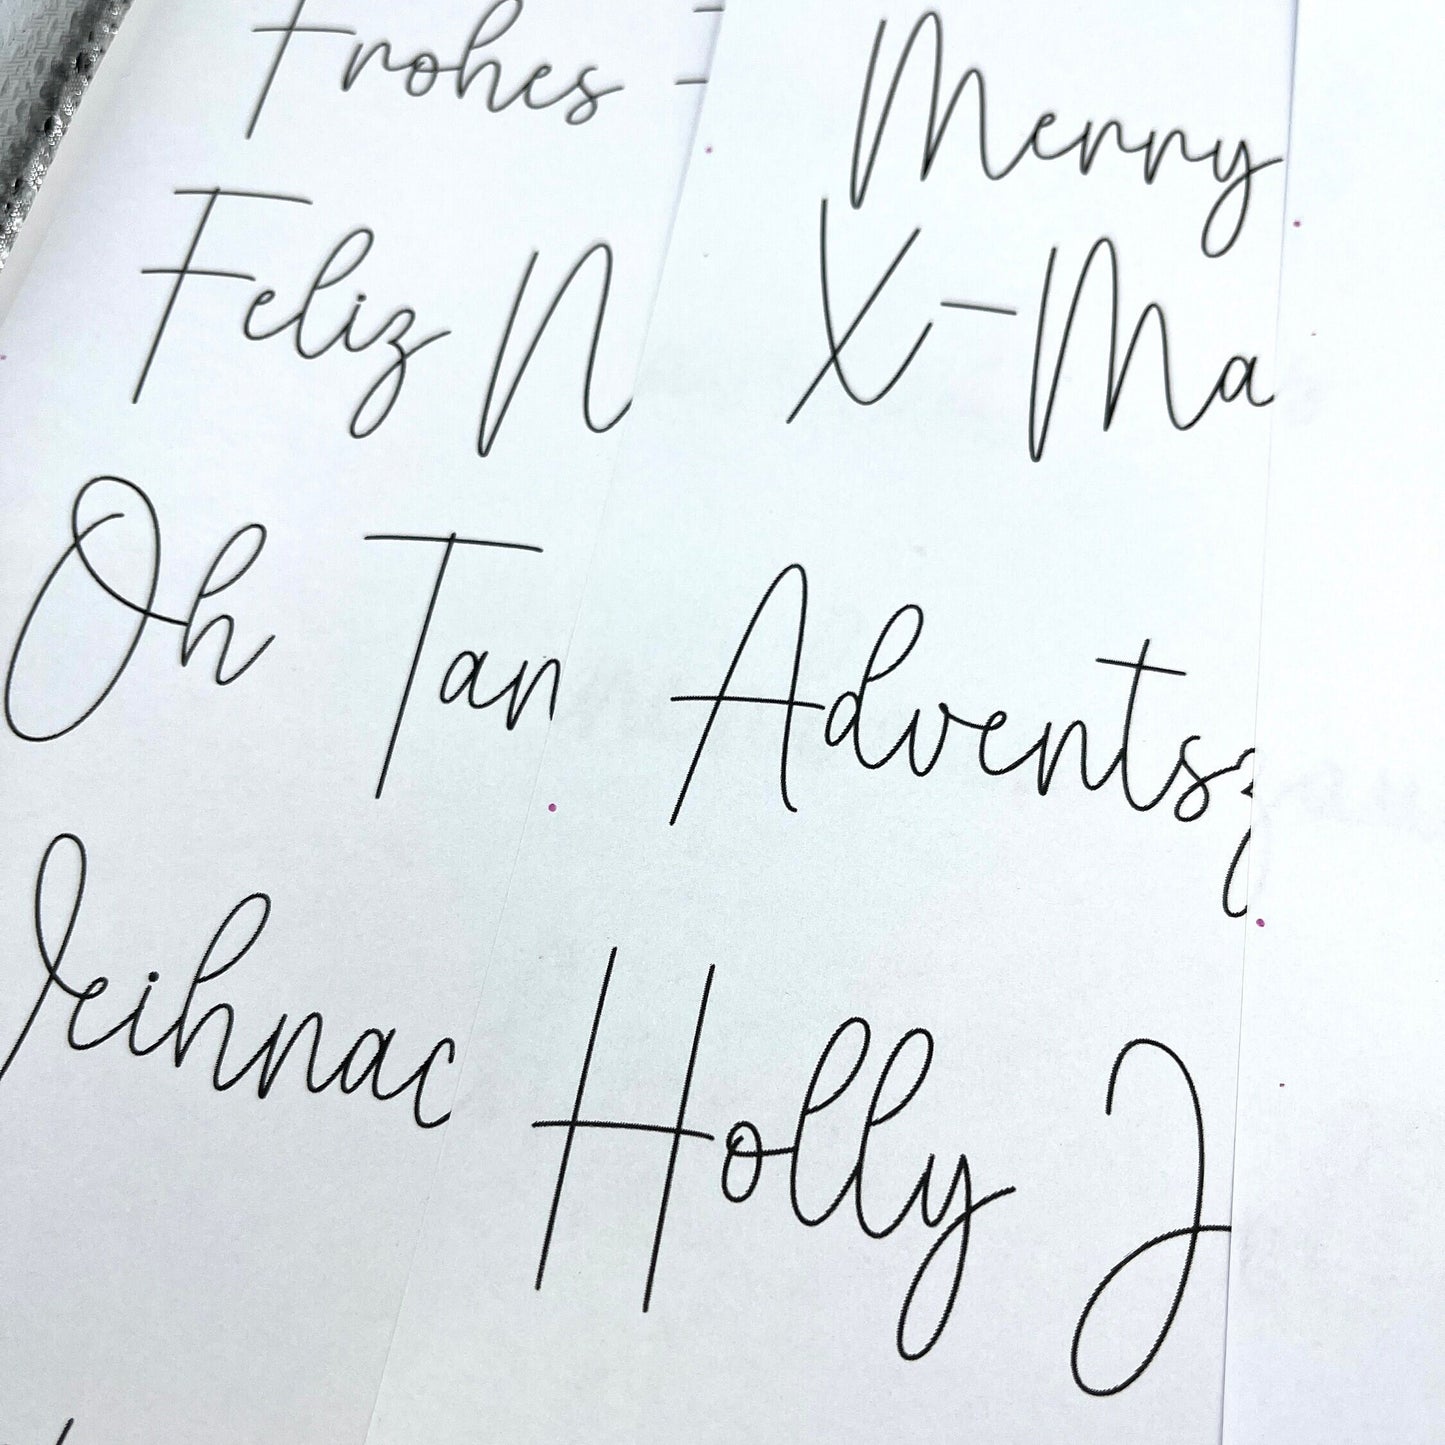 Frohes
Feliz N
Oh Tan
Weihnac
Merry
X-Ma
Adventsz
Holly J